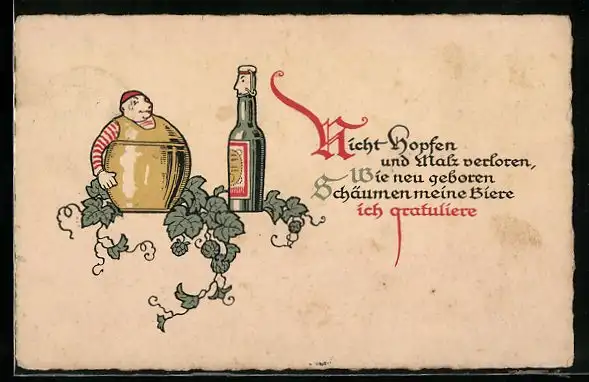 Nicht Hopfen
und Malz verloren,
Wie neu geboren
Schäumen meine Biere
ich gratuliere